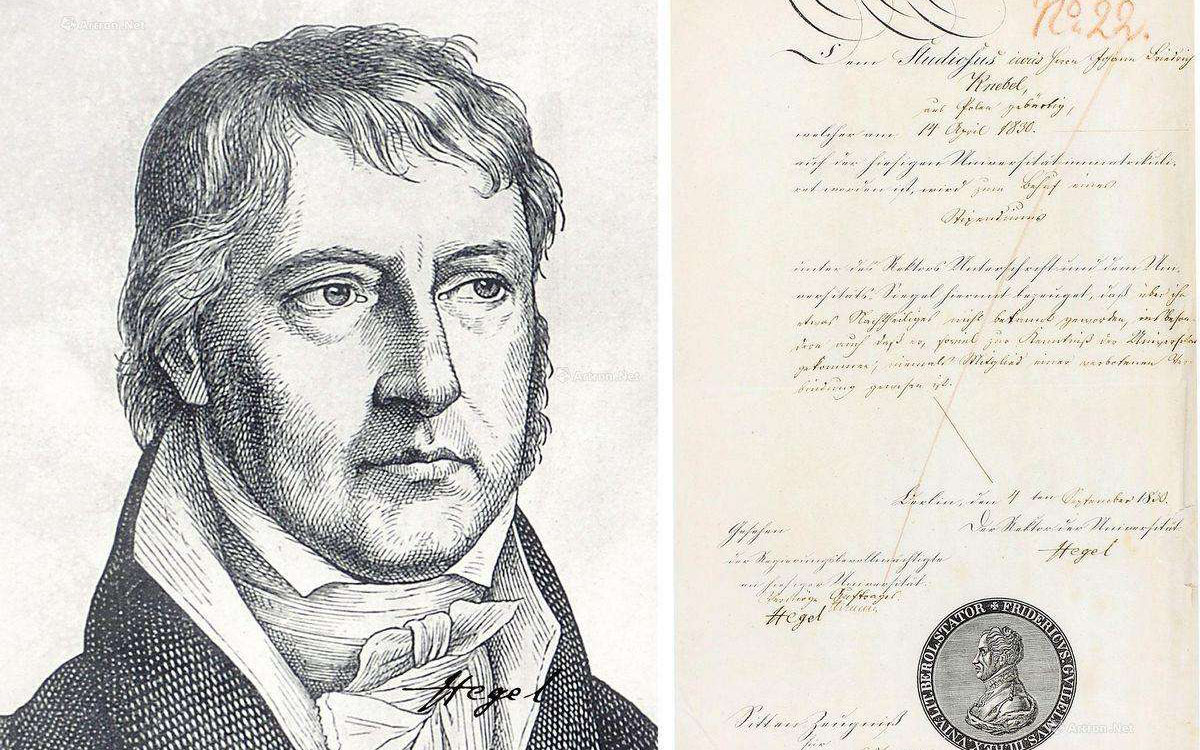 Artron.Net
Hegel
Artron.Net
No. 22.
Dem Studiosus iuris Herrn Johann Friedrich
Knebel,
aus Polen gebürtig,
welcher am 14 April 1830.
auf der hiesigen Universität immatrikuli-
ret worden ist, wird zum Behuf eines
Stipendiums
unter des Rektors Unterschrift und dem Uni-
versitäts-Siegel hiermit bezeuget, daß über ihn
etwas Nachtheiliges nicht bekannt geworden, insbeson
dere auch daß er, soviel zur Kenntniß der Universität
gekommen, niemals Mitglied einer verbotenen Ver-
bindung gewesen ist.
Berlin, den 4 ten September 1830.
Der Rektor der Universität
Hegel
Gesehen
der Regierungsbevollmächtigte
an hiesiger Universität.
Auftrages
Hegel
BEROL STATOR FRIDERICVS GVILELMVS
Sitten Zeugniß
für
Artron.Net